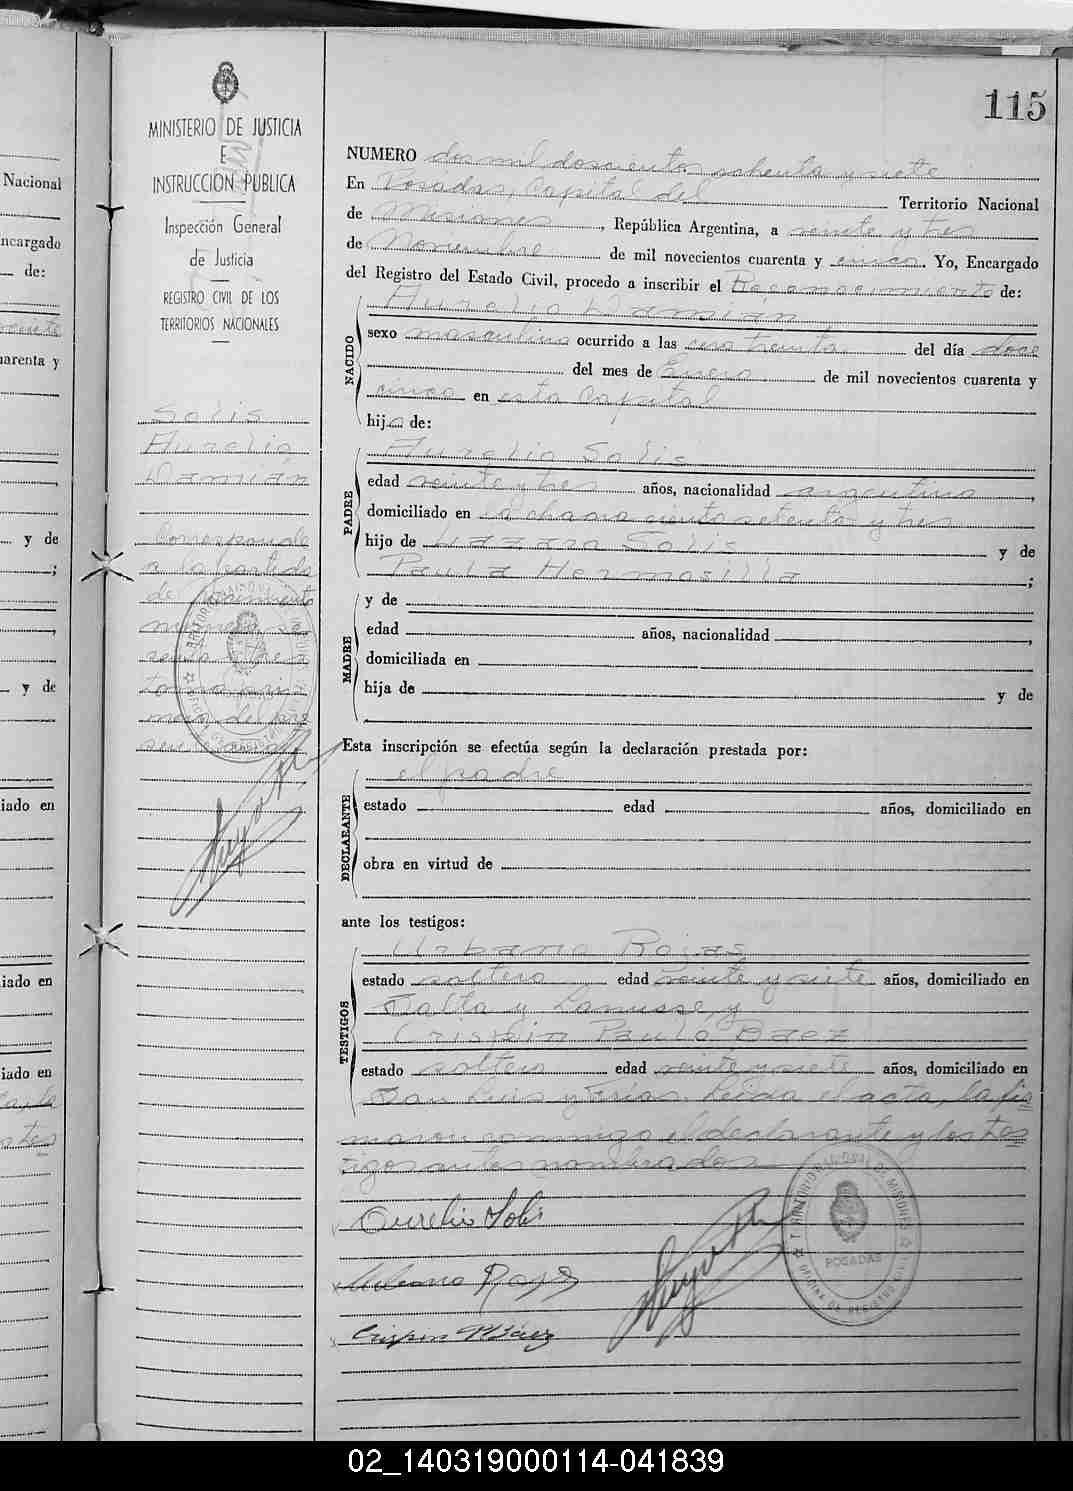 115
MINISTERIO DE JUSTICIA
E
INSTRUCCION PUBLICA
Inspección General
de Justicia
REGISTRO CIVIL DE LOS
TERRITORIOS NACIONALES
Solis
Aurelio
Damián
Corresponde
a la partida
de nacimiento
NUMERO dos mil doscientos ochenta y siete
En Posadas, Capital del Territorio Nacional
de Misiones, República Argentina, a veinte y tres
de Noviembre de mil novecientos cuarenta y cinco. Yo, Encargado
del Registro del Estado Civil, procedo a inscribir el Reconocimiento de:
NACIDO
Aurelio Damián
sexo masculino ocurrido a las cero treinta del día doce
del mes de Enero de mil novecientos cuarenta y
cinco en esta Capital
hijo de:
PADRE
Aurelio Solis
edad veinte y tres años, nacionalidad argentina,
domiciliado en la chacra ciento setenta y tres
hijo de Lazaro Solis y de
Paula Hermosilla;
MADRE
y de
edad años, nacionalidad,
domiciliada en
hija de y de
Esta inscripción se efectúa según la declaración prestada por:
DECLARANTE
el padre
estado edad años, domiciliado en
obra en virtud de
ante los testigos:
TESTIGOS
Urbano Rojas
estado soltero edad veinte y siete años, domiciliado en
Salta y Lanusse, y
Crispin Paulo Baez
estado soltero edad veinte y siete años, domiciliado en
San Luis y Frías. Leída el acta, la fir
maron conmigo el declarante y los tes
tigos antes nombrados
Aurelio Solis
Urbano Rojas
Crispin P Báez
TERRITORIO NACIONAL DE MISIONES
POSADAS
OFICINA DE REGISTRO CIVIL
Nacional
ncargado
de:
uarenta y
y de
;
y de
iado en
iado en
iado en
02_140319000114-041839